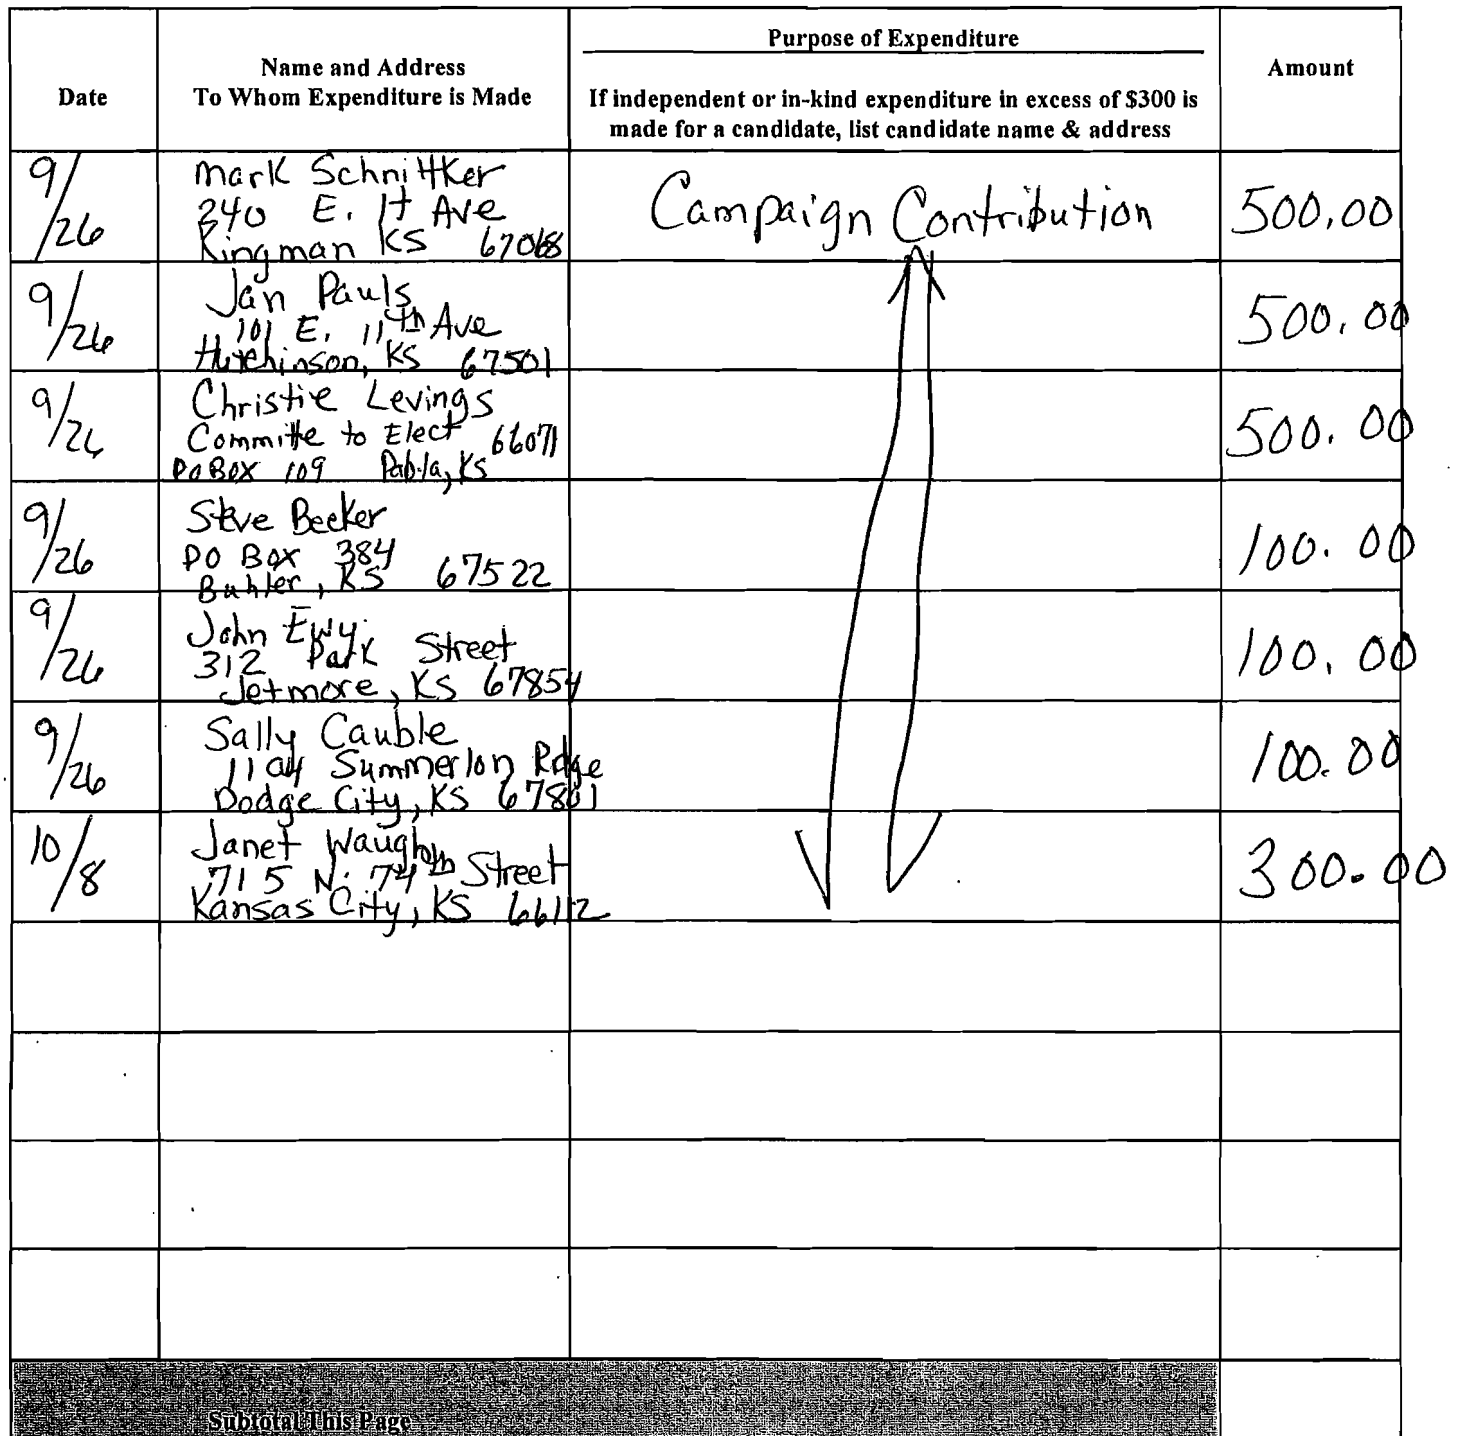 Date
Name and Address
To Whom Expenditure is Made
Purpose of Expenditure
If independent or in-kind expenditure in excess of $300 is
made for a candidate, list candidate name & address
Amount
9/26
Mark Schnittker
240 E. 1st Ave
Kingman KS 67068
Campaign Contribution
500.00
9/26
Jan Pauls
101 E. 11th Ave
Hutchinson, KS 67501
500.00
9/26
Christie Levings
Committe to Elect 66071
PO BOX 109 Paola, KS
500.00
9/26
Steve Becker
PO Box 384
Buhler, KS 67522
100.00
9/26
John Ewy
312 Park Street
Jetmore, KS 67854
100.00
9/26
Sally Cauble
1104 Summerlon Rdge
Dodge City, KS 67801
100.00
10/8
Janet Waugh
715 N. 74th Street
Kansas City, KS 66112
300.00
Subtotal This Page